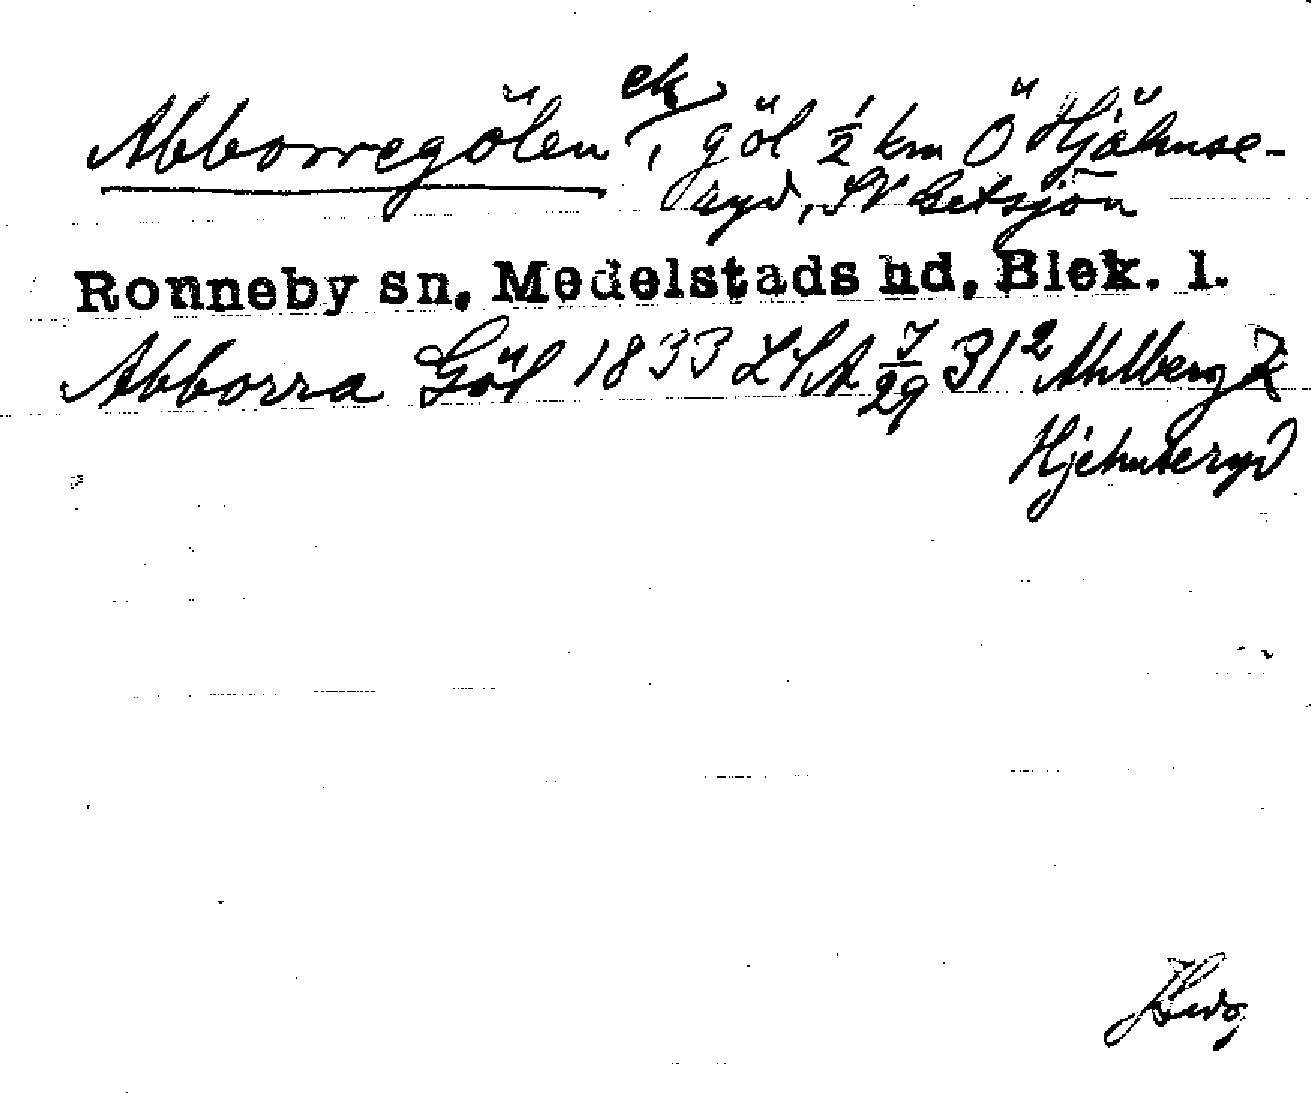 Abborregölen ek, göl ½ km Ö Hjälmse-
ryd, SV Getsjön
Ronneby sn, Medelstads hd, Blek. l.
Abborra Göl 1833 LSA 7/29 31² Ahlberg K
Hjelmseryd